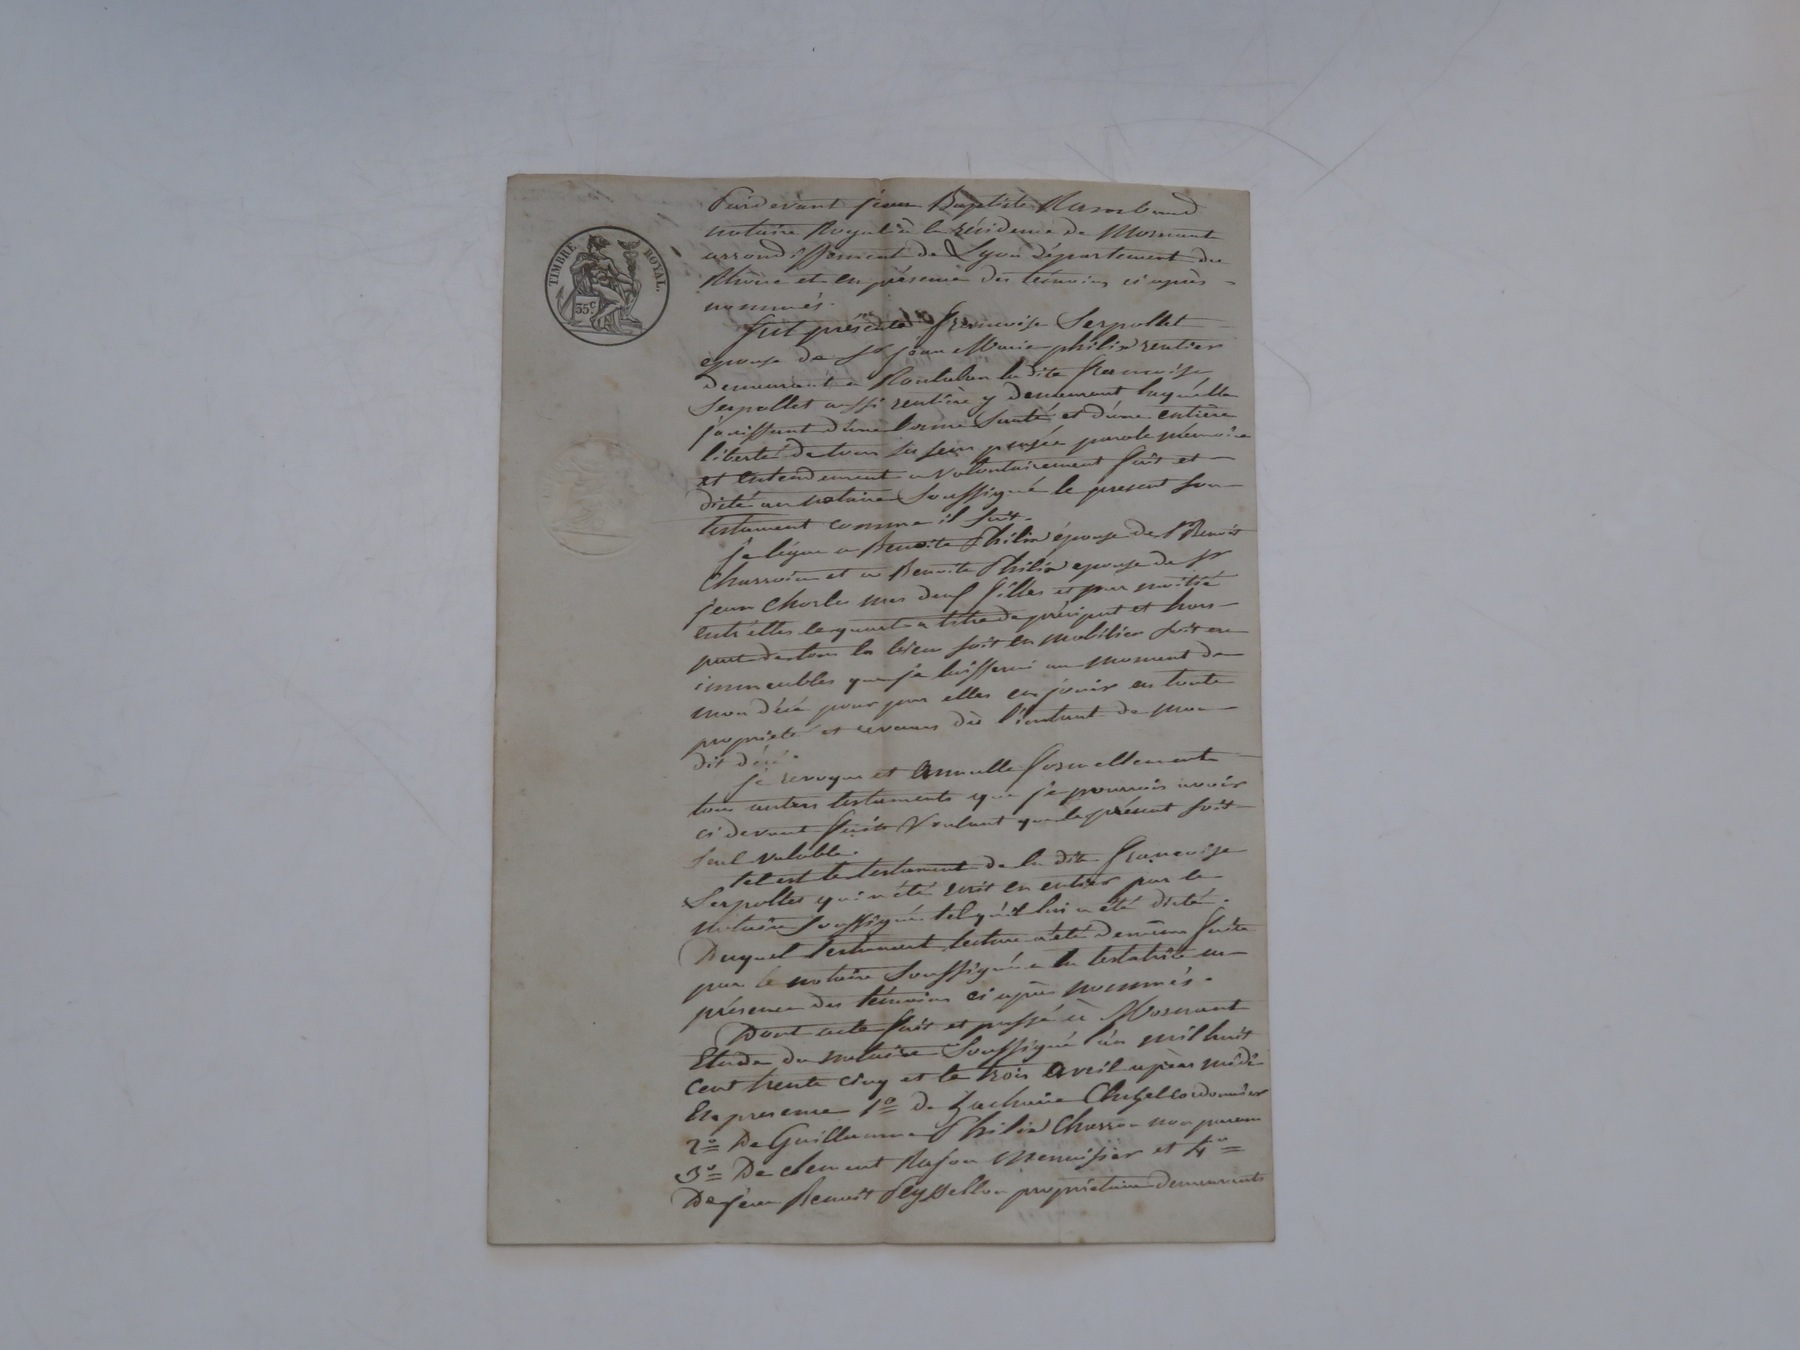 TIMBRE ROYAL.
35 c
Pardevant jean Baptiste
notaire Royal à la résidence de Mornant
arrondissement de Lyon département du
Rhône et en présence des témoins ci après
nommés.
fut présente françoise Serpollet
epouse de Sr jean Marie philis rentier
demeurant a Montaban la dite françoise
Serpollet aussi rentière y demeurant, laquelle
jouissant d'une bonne santé et d'une entière
liberté de tous ses sens pensée parole mémoire
et entendement a volontairement fait et
dicté au notaire Soussigné le present son
testament comme il suit.
je légue a Benoite Philis épouse de Sr Benoit
et a Benoite Philis epouse de Sr
jean Charles mes deux filles et par moitié
entr'elles le quart a titre de préciput et hors
part de tous les biens soit en mobilier soit en
immeubles que je laisserai au moment de
mon décé pour par elles en jouir en toute
propriété et revenus dès l'instant de mon
dit décé.
je revoque et annulle formellement
tous autres testaments que je pourrois avoir
ci devant faits Voulant que le présent soit
seul valable.
tel est le testament de la dite françoise
Serpollet qui a été écrit en entier par le
notaire soussigné tel qu'il lui a été dicté.
Duquel testament lecture a été de même faite
par le notaire Soussigné a la testatrice en
présence des témoins ci après nommés.
Dont acte fait et passé à Mornant
Etude du notaire Soussigné l'an mil huit
cent trente cinq et le trois avril après midi
En presence 1º de Zacharie cordonnier
2º De Guillaume Philis Charron non parent
3º De clement menuisier et 4º
De jean Benoit propriétaire demeurants